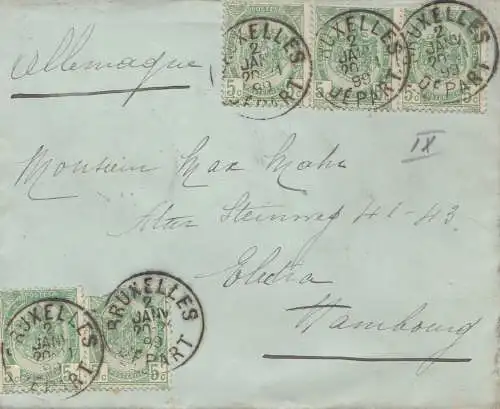 BRUXELLES 2 JANV 20 99 DEPART
BRUXELLES 2 JANV 20 99 DEPART
BRUXELLES 2 JANV 20 99 DEPART
5c 5c 5c
Allemagne
IX
Monsieur Max Mohr
Alter Steinweg 41-43
Electra
Hambourg
BRUXELLES 2 JANV 20 99 DEPART
BRUXELLES 2 JANV 20 99 DEPART
5c 5c 5c